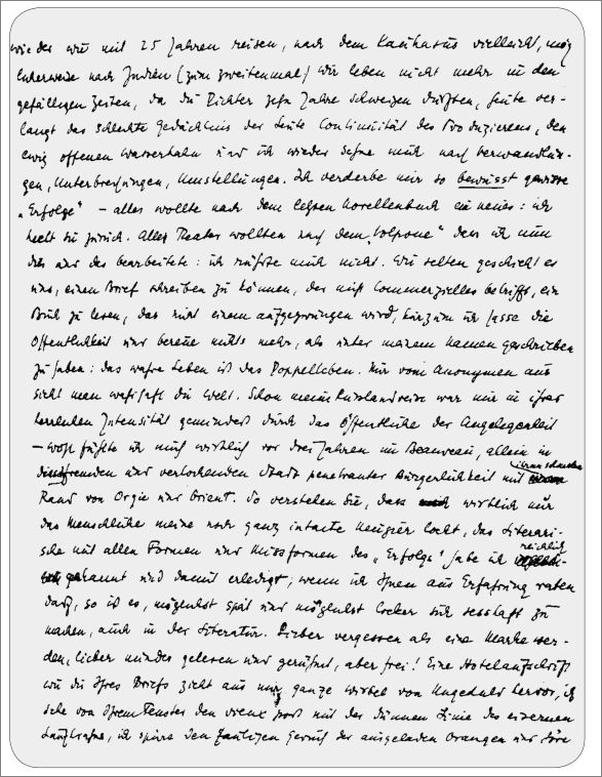 wieder wie mit 25 Jahren reisen, nach dem Kaukasus vielleicht, mög
licherweise nach Indien (zum zweitenmal) Wir leben nicht mehr in den
gefälligen Zeiten, da die Dichter zehn Jahre schweigen durften, heute ver-
langt das schlechte Gedächtnis der Leute Continuität des Produzierens, den
ewig offenen Wasserhahn und ich wieder sehne mich nach Verwandlun-
gen, Unterbrechungen, Umstellungen. Ich verderbe mir so bewusst gewisse
„Erfolge" – alles wollte nach dem letzten Novellenbuch ein neues: ich
hielt es zurück. Alle Theater wollten nach dem „Volpone" den ich nun
das bearbeitete: ich rührte mich nicht. Wie selten geschieht es
uns, einen Brief schreiben zu können, der nicht Commerzielles betrifft, ein
Buch zu lesen, das nicht einem aufgezwungen wird, kurzum ich hasse die
Öffentlichkeit und bereue nichts mehr, als unter meinem Namen geschrieben
zu haben: das wahre Leben ist das Doppelleben. Nur vom Anonymen aus
sieht man wahrhaft die Welt. Schon meine Russlandreise war mir in ihrer
herrlichen Intensität gemindert durch das Öffentliche der Angelegenheit
– wohl fühlte ich mich wirklich vor drei Jahren im Beauveau, allein in
fremden und verlockenden Stadt penetranter Bürgerlichkeit mit
Rand von Orgie und Orient. So verstehen Sie, dass wirklich nur
das Menschliche meine noch ganz intacte Neugier lockt, das Literari-
sche mit allen Formen und Missformen des „Erfolgs" habe ich reichlich
gekannt und damit erledigt; wenn ich Ihnen aus Erfahrung raten
darf, so ist es, möglichst spät und möglichst locker sich sesshaft zu
machen, auch in der Literatur. Lieber vergessen als eine Marke wer-
den, lieber minder gelesen und gerühmt, aber frei! Eine Hotelaufschrift
wie die Ihres Briefs zieht aus mir ganze Wirbel von Ungeduld hervor, ich
sehe von Ihrem Fenster den vieux port mit der dünnen Linie des eisernen
ich spüre den fauligen Geruch der ausgeladen Orangen und höre